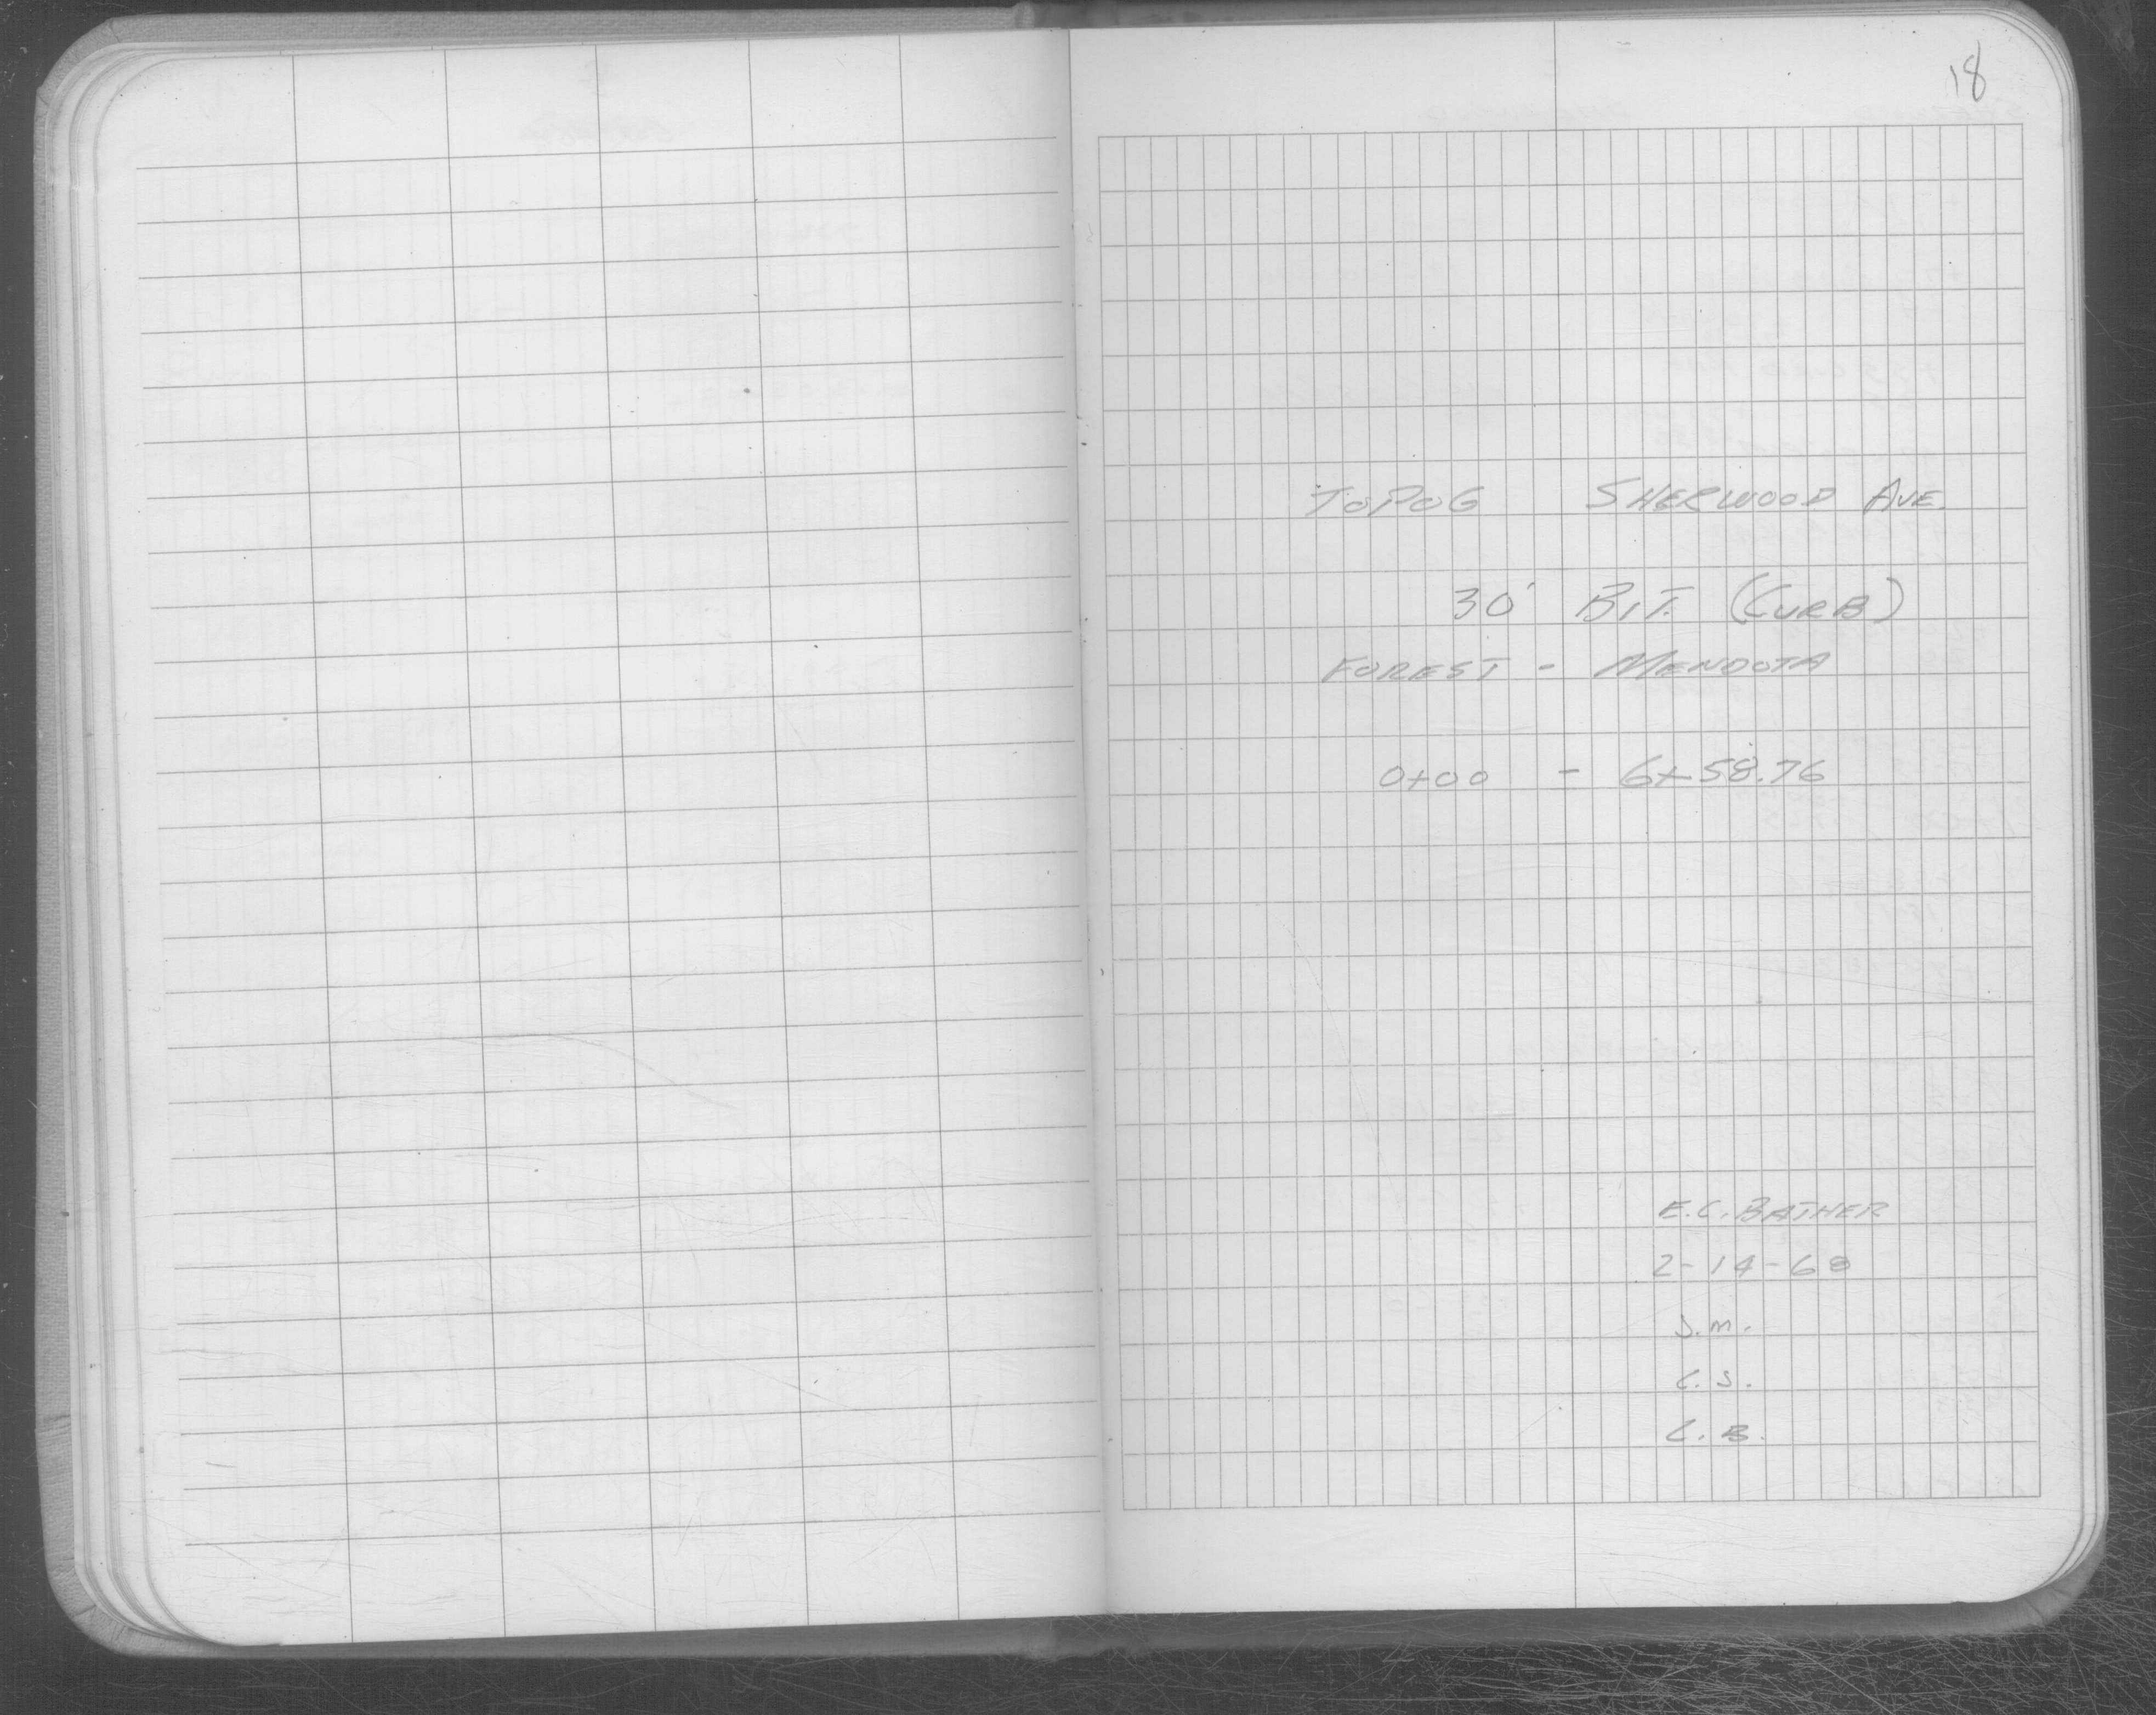 18
TOPOG SHERWOOD AVE.
30' BIT. (CURB)
FOREST - MENDOTA
0+00 - 6+58.76
E.C. BATHER
2-14-68
J.M.
C.S.
C.B.